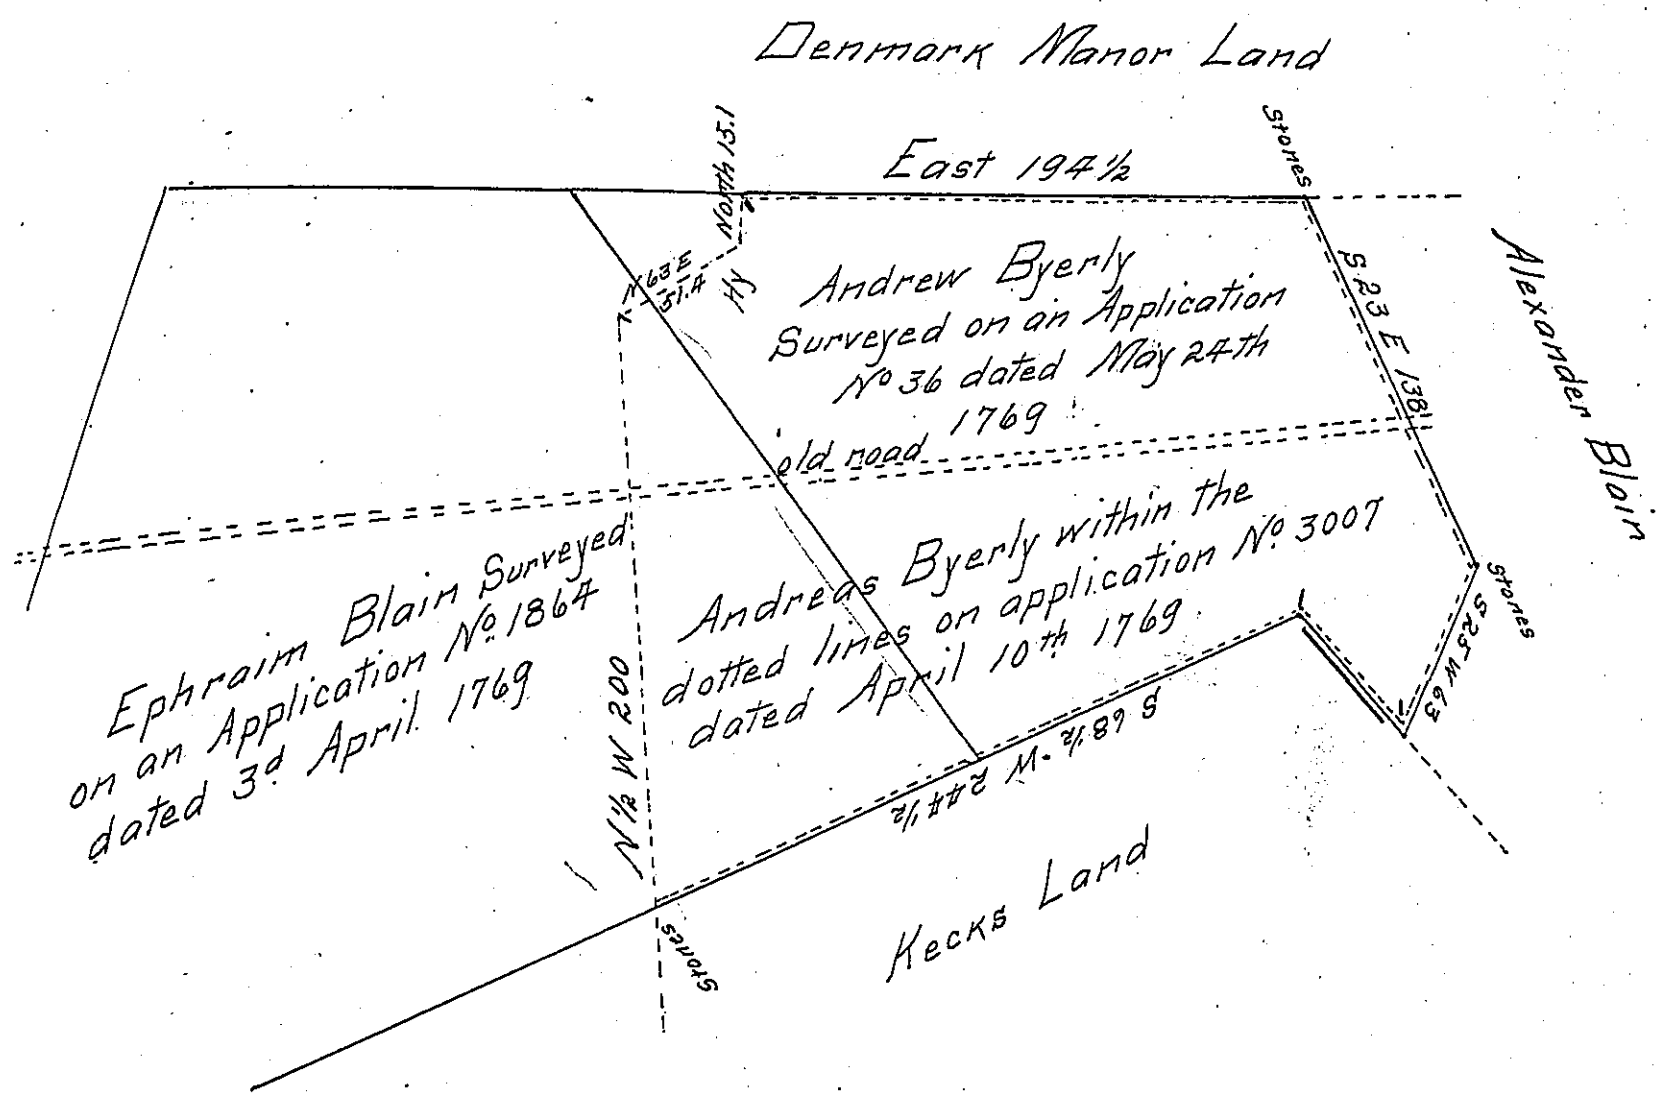 Denmark Manor Land
North 15.1
East 194½
Stones
N 63 E
51.4
Hy
Andrew Byerly
Surveyed on an Application
Nº 36 dated May 24th
1769
S 23 E 138
Alexander Blair
old road
Stones
S 25 W 63
Ephraim Blain Surveyed
on an Application Nº 1864
dated 3d April 1769
N 1½ W 200
Andreas Byerly within the
dotted lines on application Nº 3007
dated April 10th 1769
S 68½ W 244½
Stones
Kecks Land